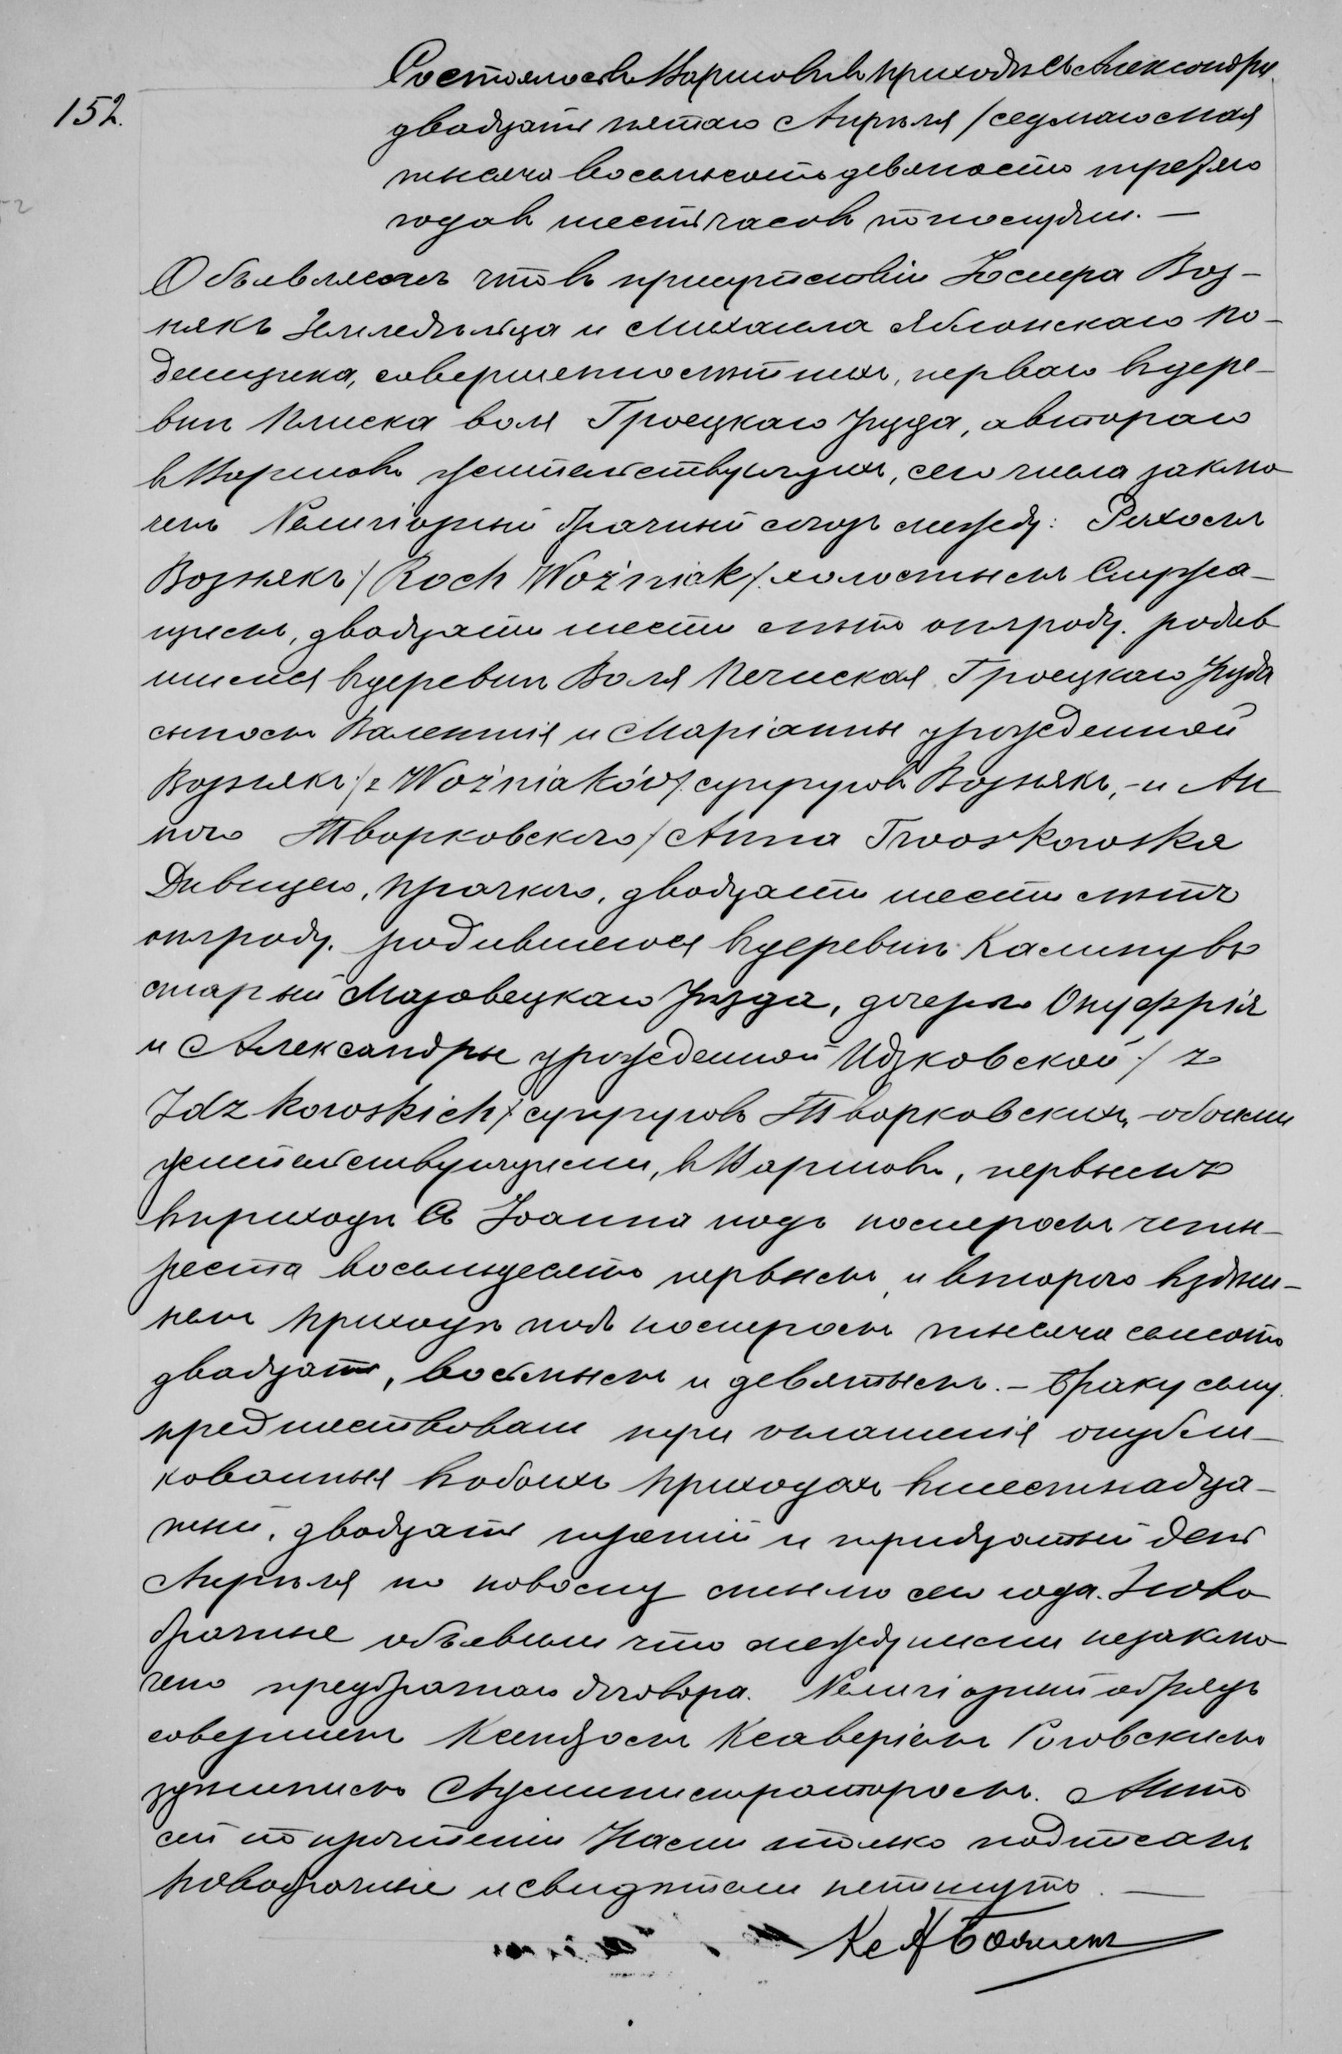 Состоялось въ Варшавѣ въ приходѣ Св. Александра
152.
двадцать пятаго Апрѣля / седмаго мая
тысяча восемьсотъ девяносто третьяго
года въ шесть часовъ по полудни. —
Объявляемъ что въ присутствіи Іосифа Воз-
някъ Земледѣльца и Михаила Яблонскаго по-
денщика, совершеннолѣтнихъ, перваго въ дере-
вни воля Гроецкаго Уѣзда, а втораго
въ Варшавѣ жительствующихъ, сего числа заклю
ченъ Религіозный брачный союзъ между: Рохомъ
Вознякъ /Roch Woźniak/ холостымъ
двадцати шести лѣтъ отъ роду. родив
шимся въ деревни Воля Гроецкаго Уѣзда
сыномъ Валентія и Маріанны урожденной
Вознякъ /z Woźniaków/ супруговъ Вознякъ, - и Ан
ною Творковскою / Anna Tworkowska
Дѣвицею, прачкою, двадцати шести лѣтъ
отъ роду. родившеюся въ деревни Калинувъ
старый Мазовецкаго Уѣзда, дочерью Онуфрія
и Александры урожденной Идзковской / z
Idzkowskich / супруговъ Творковскихъ, - обоими
жительствующими, въ Варшавѣ, первымъ
въ приходѣ Св Іоанна подъ номеромъ четы-
реста восемьдесятъ первымъ, и второю въ здѣш-
немъ приходѣ подъ номеромъ тысяча семьсотъ
двадцать, восьмымъ и девятымъ. - Браку сему
предшествовали три оглашенія опубли-
кованныя въ обоихъ приходахъ въ шестнадца-
тый, двадцать третій и тридцатый день
Апрѣля по новому стилю сего года. Ново
брачные объявили что между ними незаклю
чено предбрачнаго договора. Религіозный обрядъ
совершенъ Ксендзомъ Ксаверіемъ Роговскимъ
здѣшнимъ Администраторомъ. Актъ
сей по прочтеніи Нами только подписанъ
Новобрачные и свидѣтели неграмотны. —
Кс